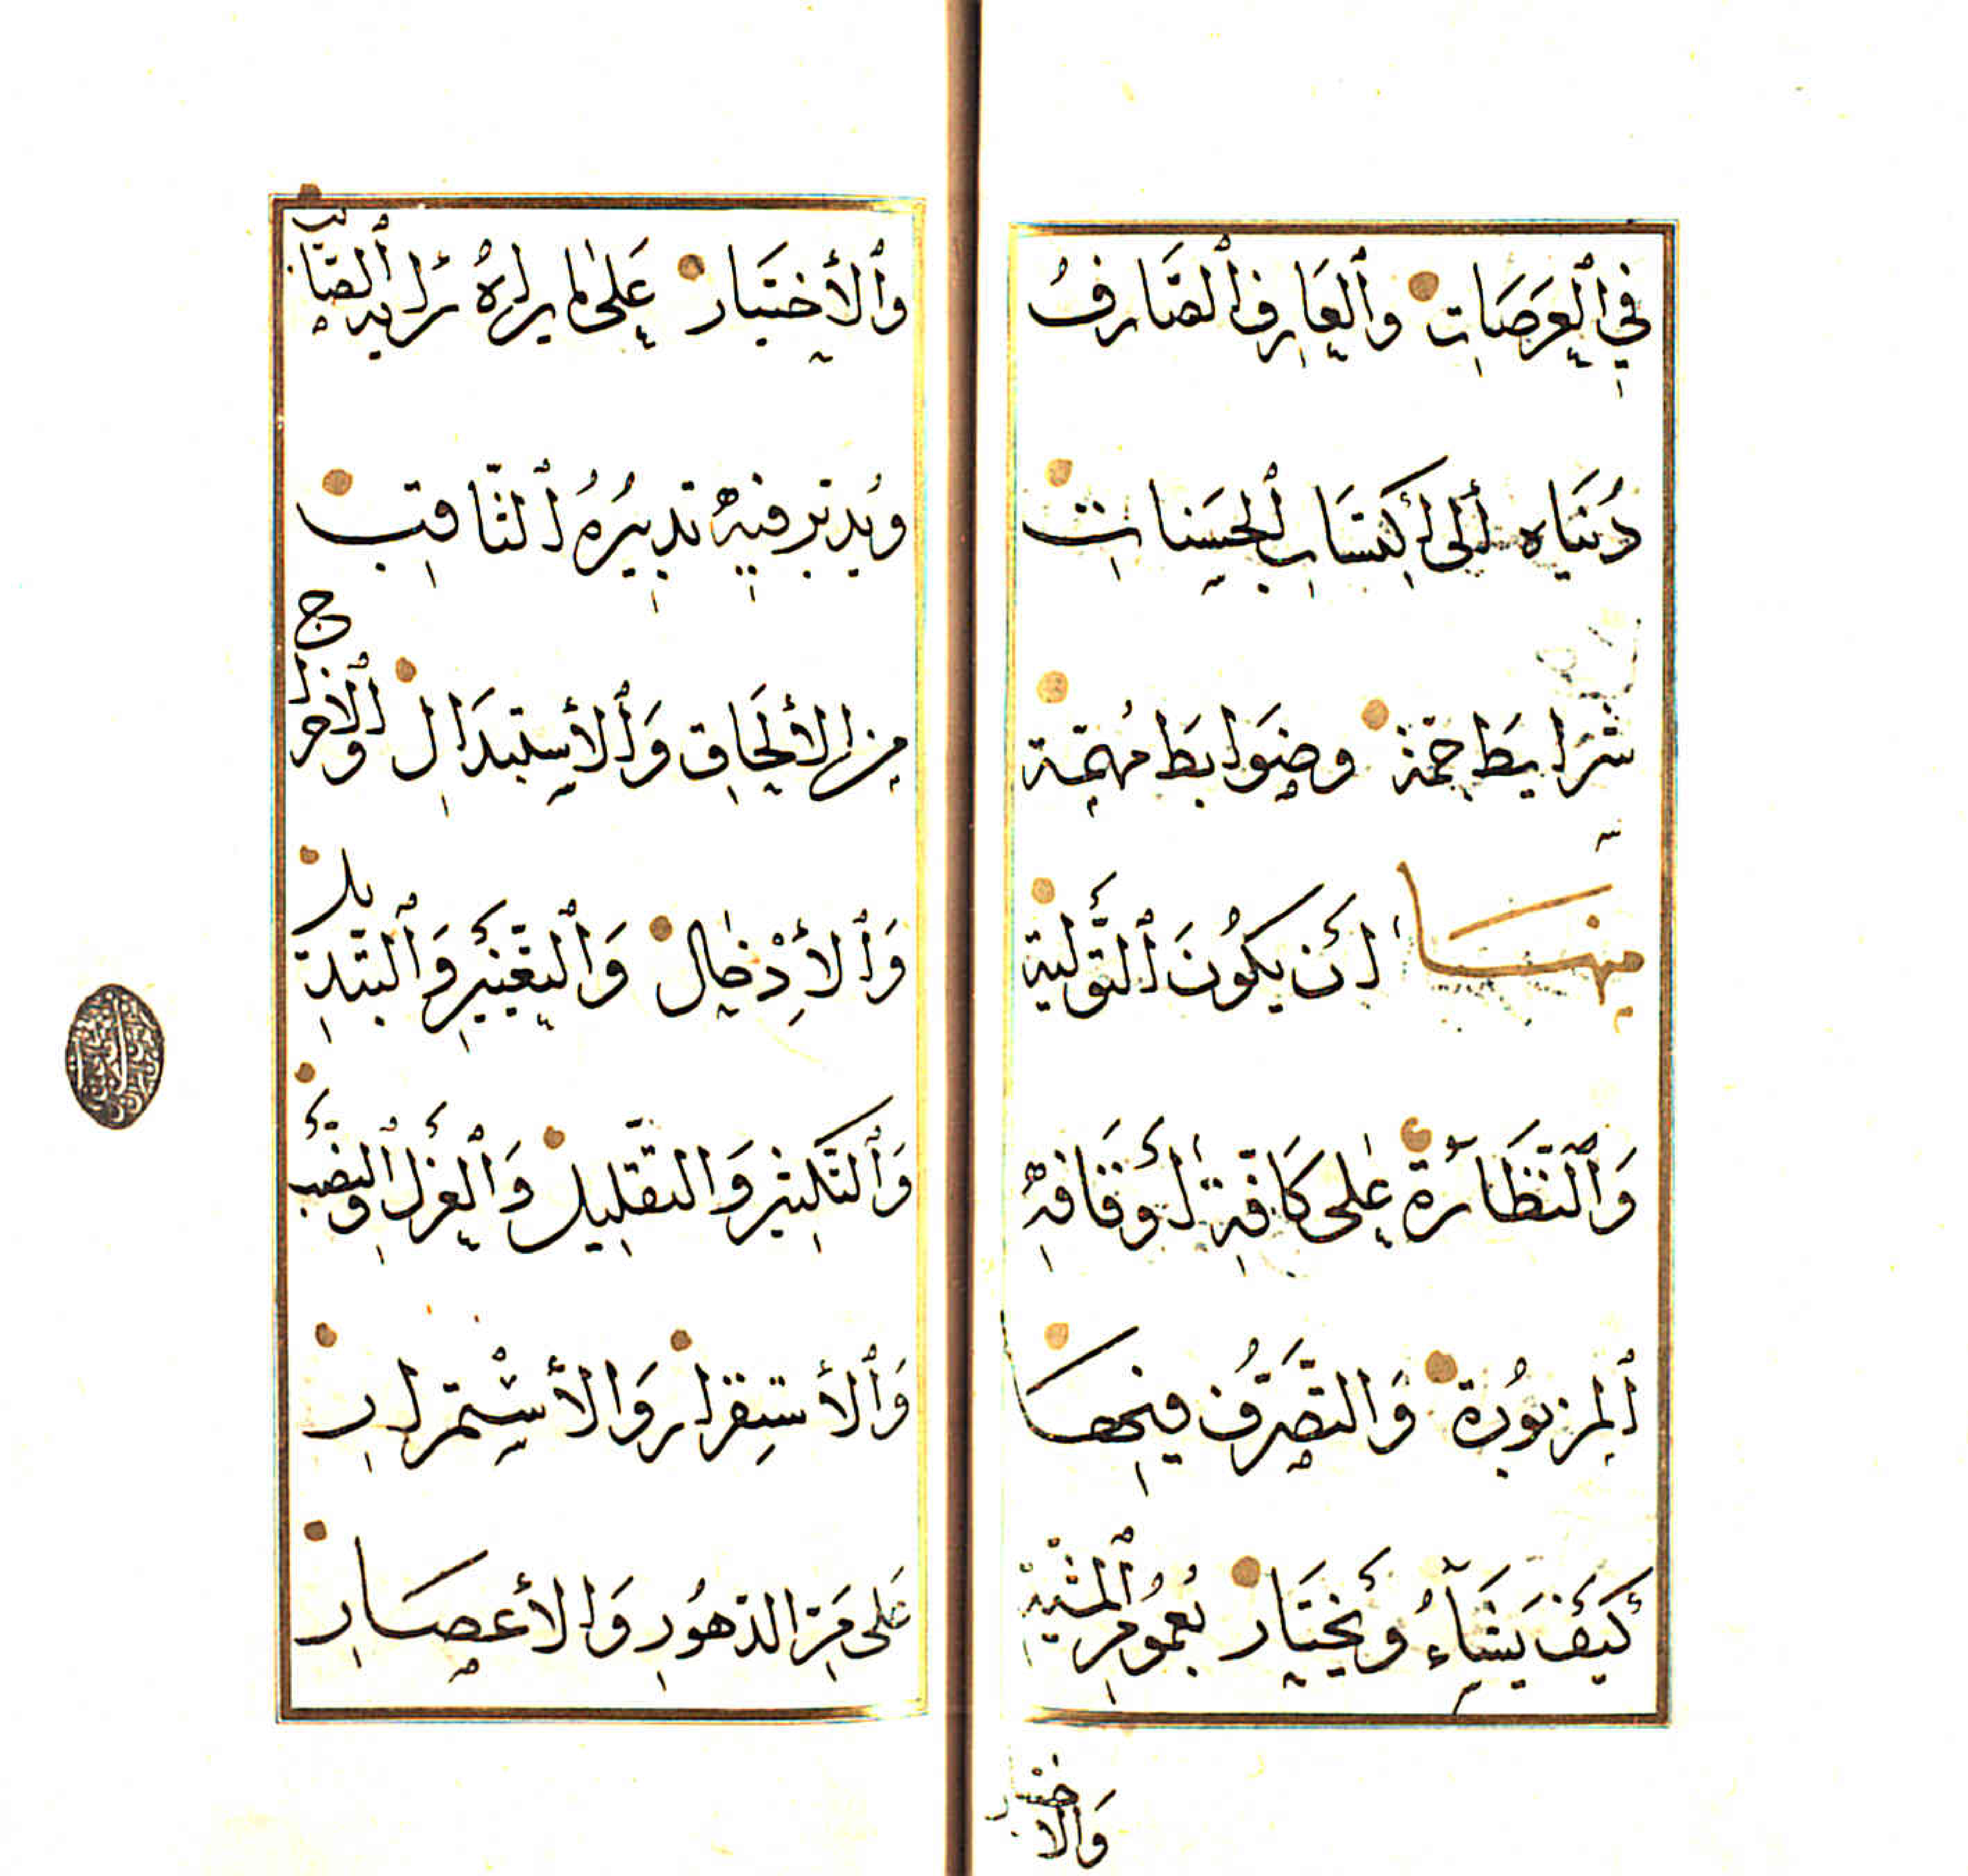 فِي ٱلْعَرَصَاتِ وٱلْعَارِفِ ٱلصَّارِفُ
دُنيَاه إِلى ٱكْتسَابِ ٱلحسَناتِ
شرَايطَ جمّة وضوَابطَ مُهمّة
مِنهَا أَن يكُونَ ٱلتَّوْلية
وَٱلنَّظَارَة عَلى كَافّةِ أَوْقَافهِ
ٱلمزبُورَة وَالتصَرّفُ فيهَا
كَيْفَ يَشَآءُ وَيَخْتَار بعُمُومِ ٱلمشيّةِ
وَالاختيار
وَٱلأختيَار عَلىٰ ما يراهُ رَأيه ٱلصَّايب
ويُدبّر فيهِ تدبيرُهُ ٱلثّاقب
مِن الألحَاقِ وَٱلأستبدَالِ وٱلأخراج
وَٱلأدْخالِ وَٱلتغْييرِ وَٱلتبْديل
وَٱلتَكثيرِ وَالتقليل وَٱلعَزْلِ وٱلنصْب
وَٱلأستقرار وَالأسْتمرارِ
عَلى مَرّ الدّهُورِ وَالأعصَارِ